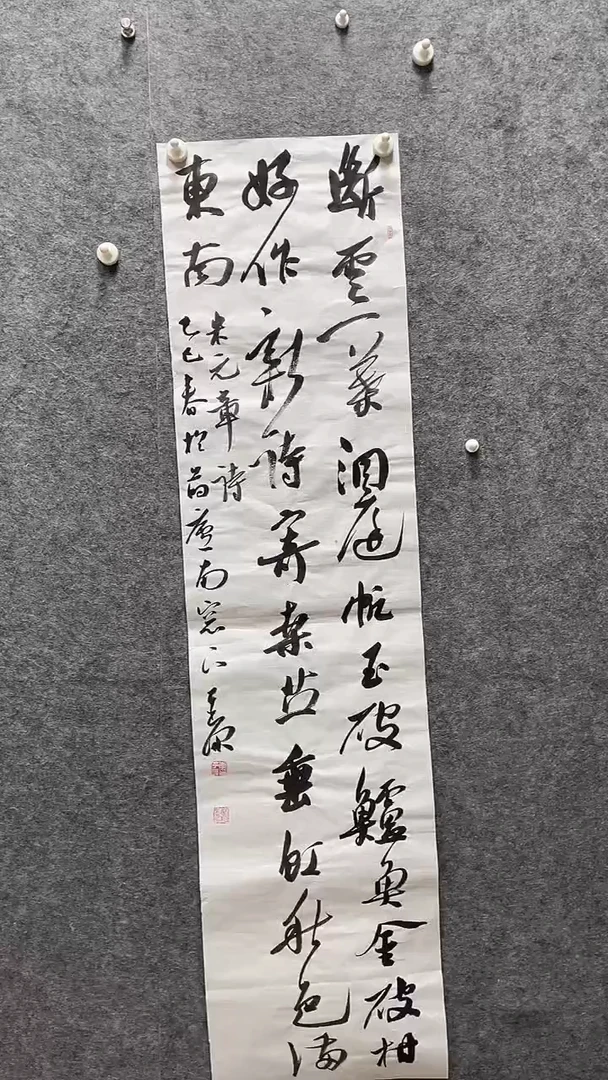 斷雲一葉洞庭帆玉破鱸魚金破柑
好作新詩寄桑苎垂虹秋色滿
東南
米元章詩
乙巳春於南窓下